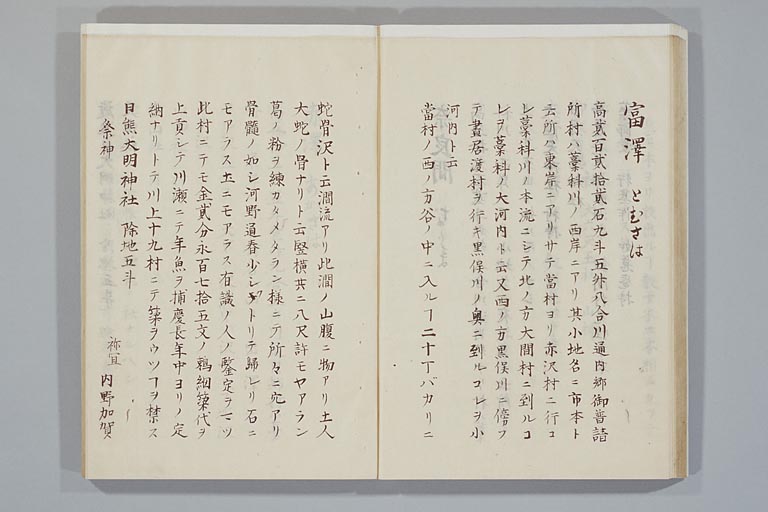 富澤 とむさは
高貳百貳拾貳石九斗五舛八合川通内郷御普請
所村ハ藁科川ノ西岸ニアリ其小地名ニ市本ト
云所ハ東岸ニアリサテ當村ヨリ赤沢村ニ行コ
レ藁科川ノ本流ニシテ北ノ方大間村ニ到ルコ
レヲ藁科ノ大河内ト云又西ノ方黒俣川ニ傍フ
テ晝居渡村ヲ行キ黒俣川ノ奥ニ到ルコレヲ小
河内ト云
當村ノ西ノ方谷ノ中ニ入ルヿ二十丁バカリニ
蛇骨沢ト云澗流アリ此澗ノ山腹ニ物アリ土人
大蛇ノ骨ナリト云竪横共ニ八尺許モヤアラン
葛ノ粉ヲ練カタメタラン様ニテ所々ニ穴アリ
骨髓ノ如シ河野通春少シヅヽトリテ歸レリ石ニ
モアラス土ニモアラス有識ノ人ノ鑒定ヲマツ
此村ニテモ金貳分永百七拾五文ノ鵜細簗代ヲ
上貢シテ川瀬ニテ年魚ヲ捕慶長年中ヨリノ定
納ナリトテ川上十九村ニテ簗ヲウツヿヲ禁ス
日熊大明神社 除地五斗
祭神 祢宜 内野加賀